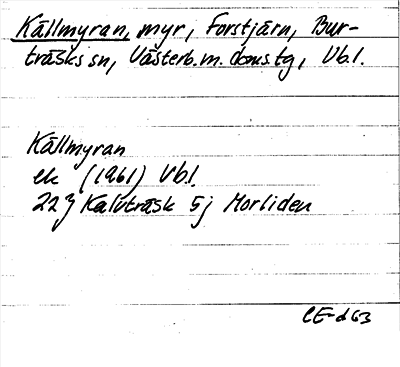 Källmyran, myr, Forstjärn, Bur-
träsks sn, Västerb. m. doms.tg, Vb.l.
Källmyran
ek (1961) Vb.l.
22 J Kalvträsk 5j Morliden
CE-d 63